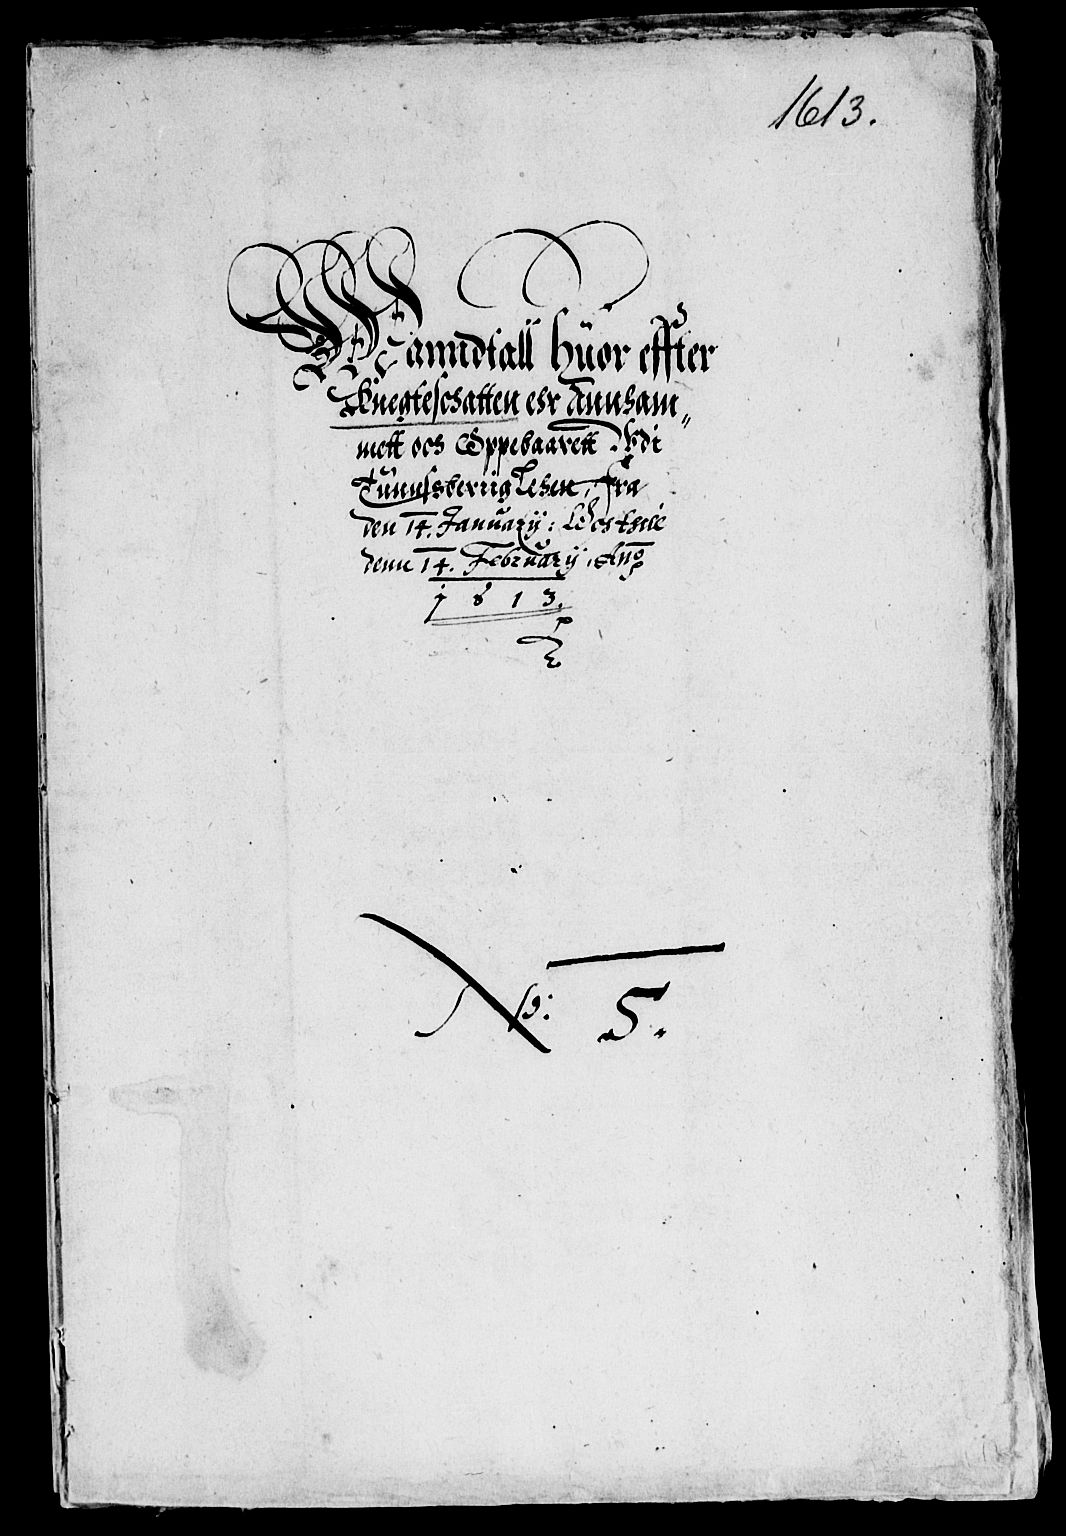 1613.
Manndtall huor effter
Knegteschatten ehr Annham„
mett och Oppebaarett Udi
Tünnsberrig Lehen, fra
den 14. January: Och till
denn 14. February, Ano
1613.
N: 5.